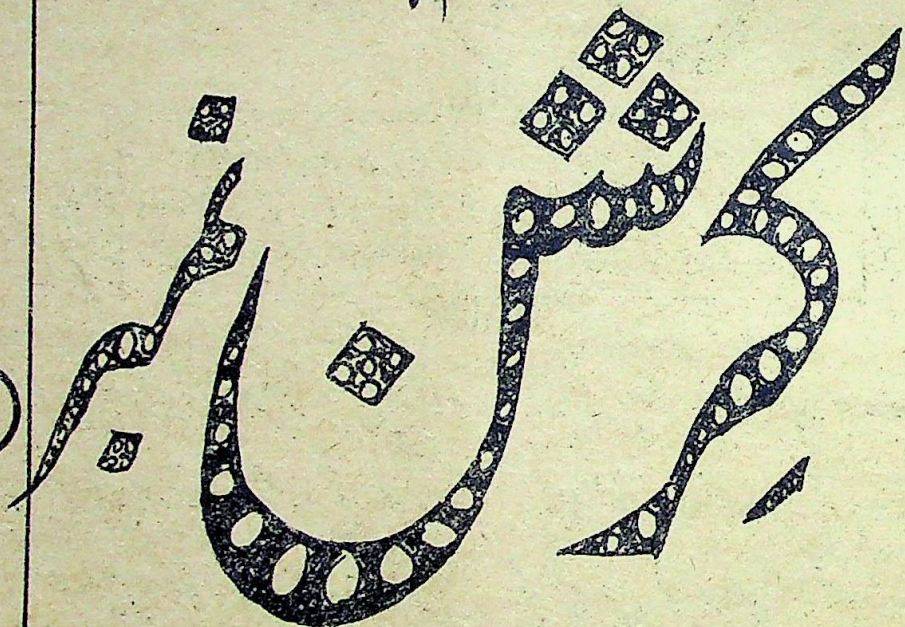 کرِشن نمبر